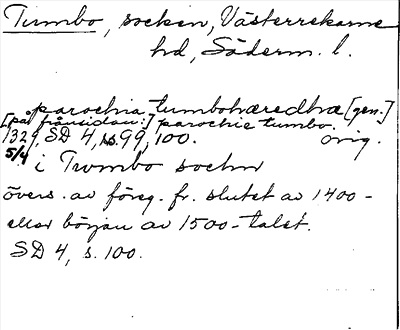 Tumbo, socken, Västerrekarne
hd, Söderm. l.
parochia tumbohæredhræ [gen.]
[på frånsidan:] parochie tumbo.
1329, SD 4, s. 99, 100. orig.
5/4
i Trombo sochn
övers. av föreg. fr. slutet av 1400-
eller början av 1500-talet.
SD 4, s. 100.